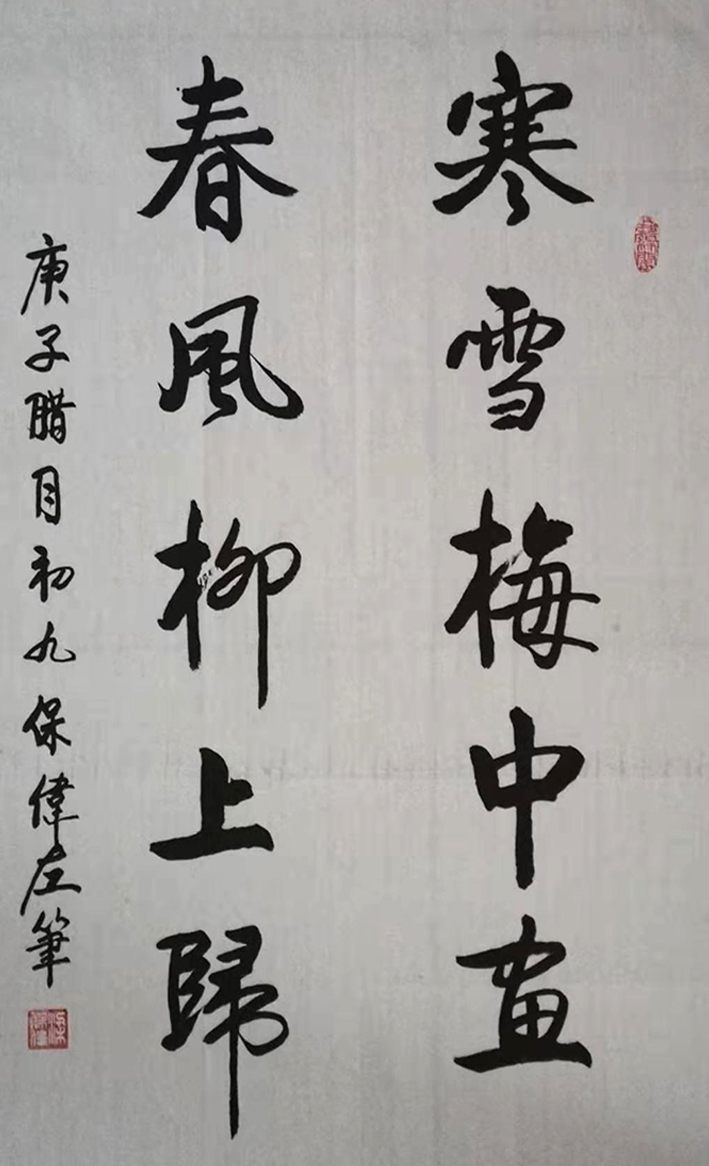 寒雪梅中画
春風柳上歸
庚子腊月初九保偉左筆